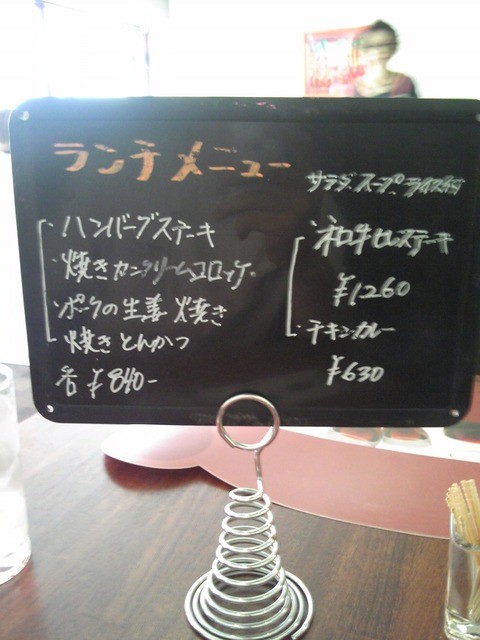 ランチメニュー
サラダ、スープ ライス付
・ハンバーグステーキ
・焼きカニクリームコロッケ。
・ポークの生姜焼き
・焼きとんかつ
各 ¥840-
・和牛ヒレステーキ
¥1260
・チキンカレー
¥630